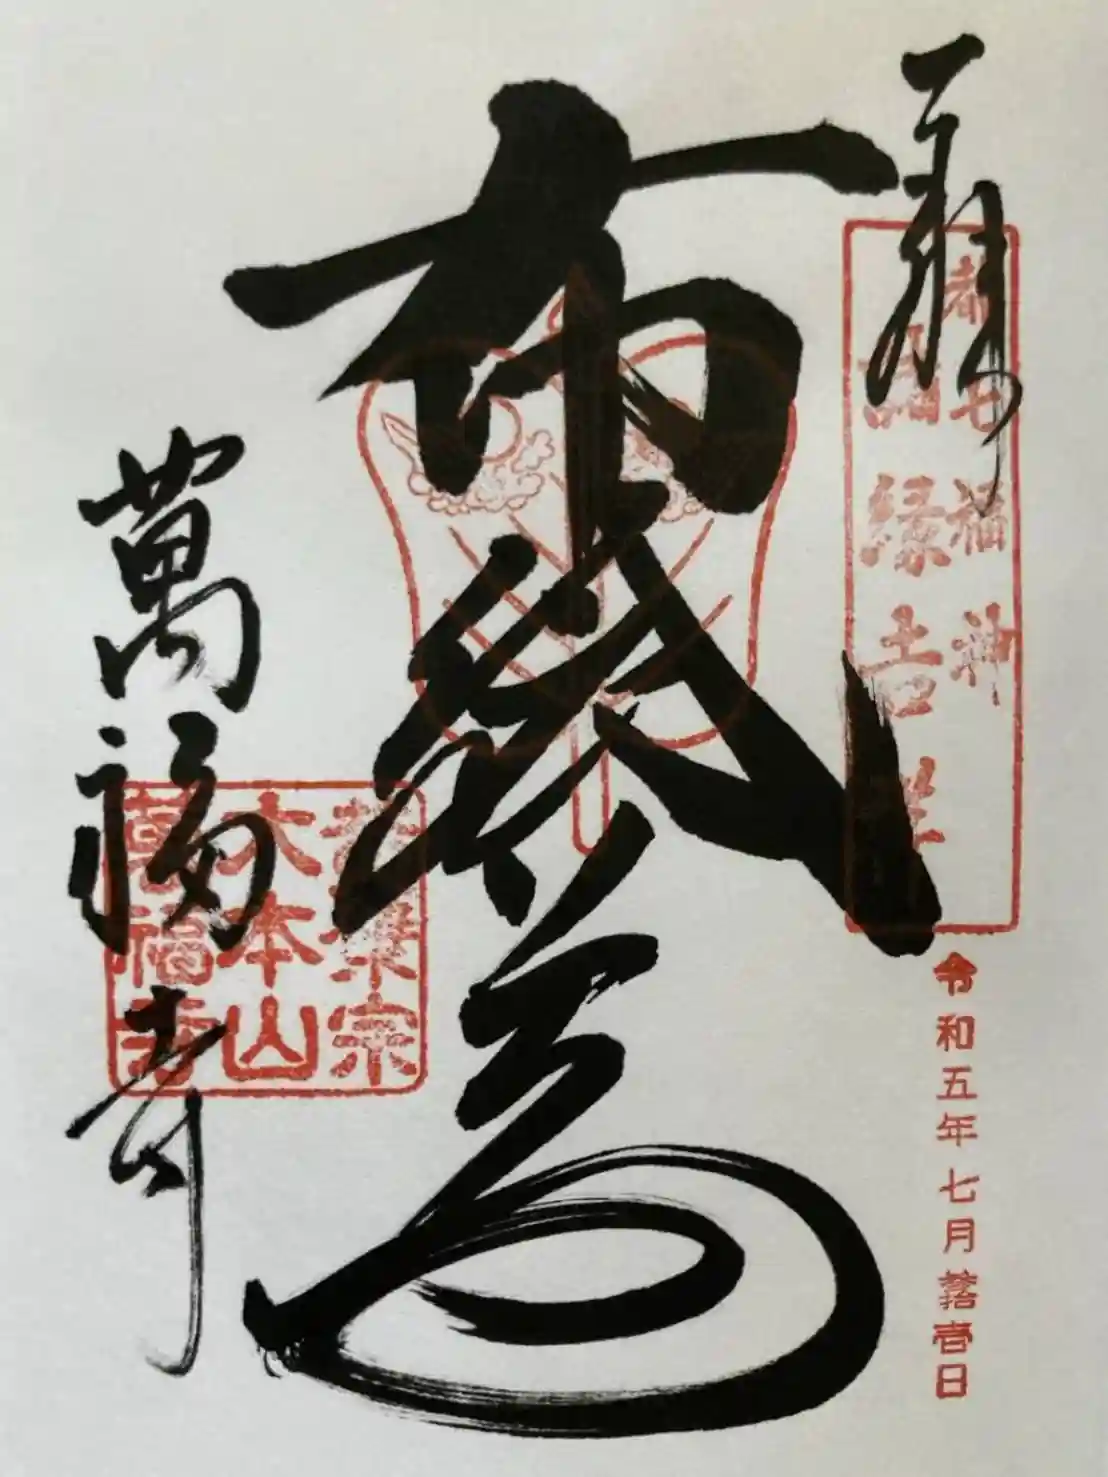 奉拝
都七福神
諸縁吉祥
令和五年七月拾壹日
布袋尊
黄檗宗
大本山
萬福寺
萬福寺